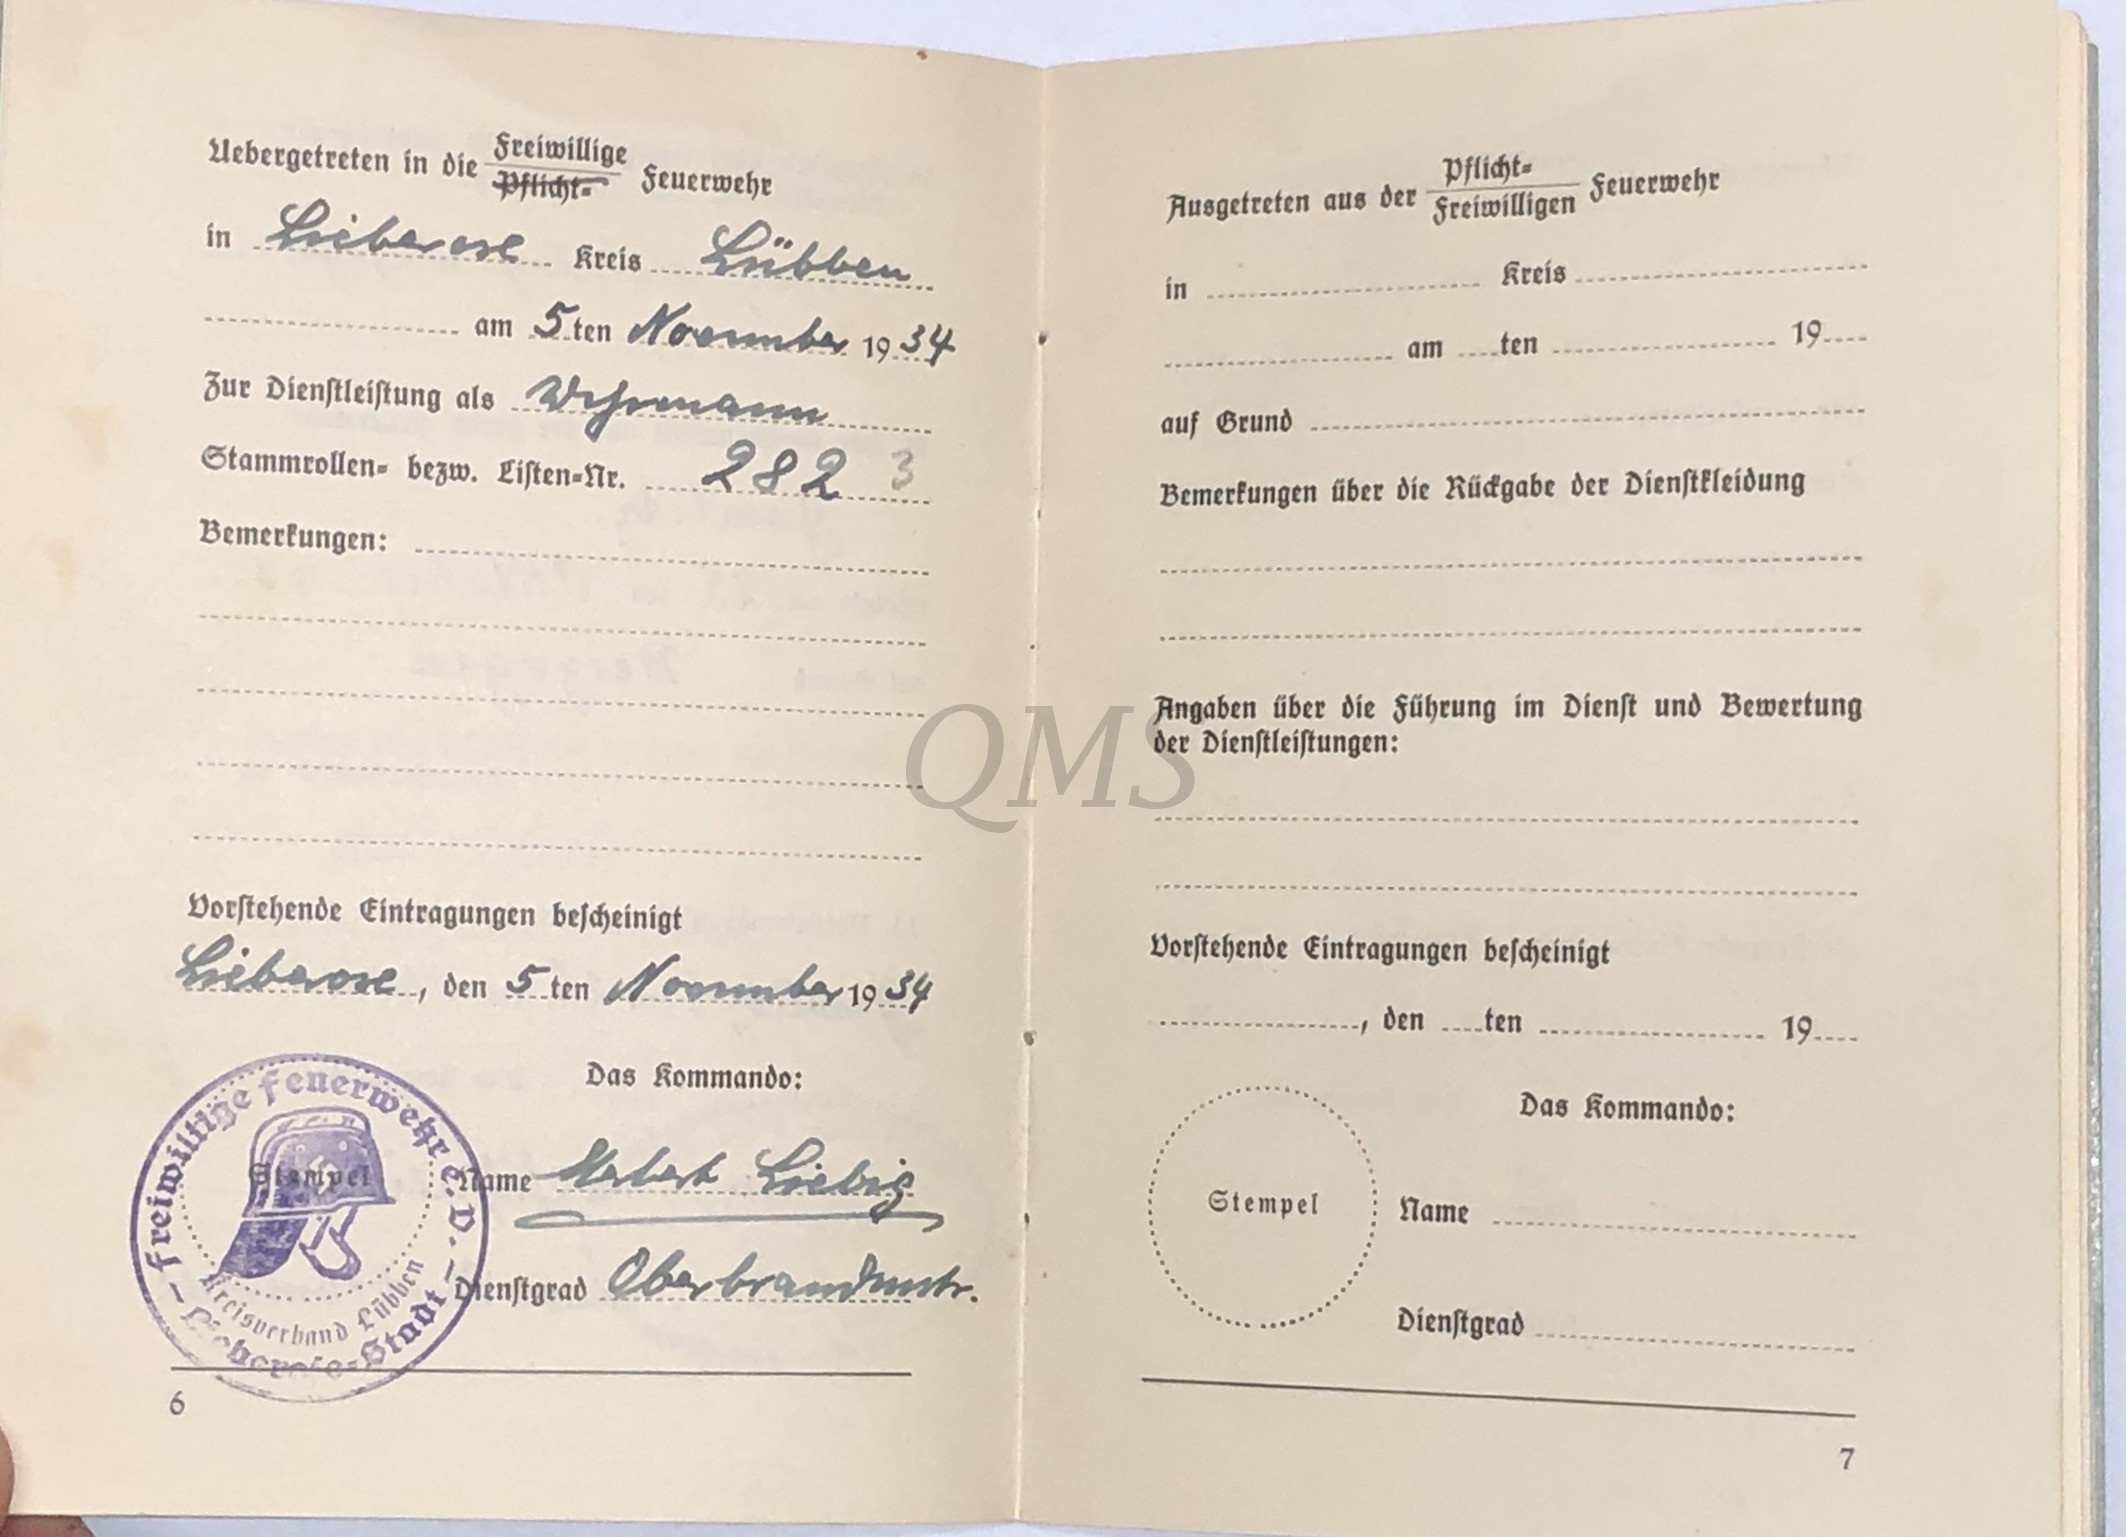 Uebergetreten in die Freiwillige / Pflicht- Feuerwehr
in Lieberose Kreis Lübben
am 5ten November 1934
Zur Dienstleistung als Wehrmann
Stammrollen- bezw. Listen-Nr. 282 3
Bemerkungen:
Vorstehende Eintragungen bescheinigt
Lieberose, den 5ten November 1934
Das Kommando:
Freiwillige Feuerwehr E.V.
Lieberose-Stadt
Kreisverband Lübben
Stempel
Name Liebig
Dienstgrad Oberbrandmstr.
6
Ausgetreten aus der Pflicht- / Freiwilligen Feuerwehr
in Kreis
am ten 19
auf Grund
Bemerkungen über die Rückgabe der Dienstkleidung
Angaben über die Führung im Dienst und Bewertung
der Dienstleistungen:
Vorstehende Eintragungen bescheinigt
, den ten 19
Das Kommando:
Stempel
Name
Dienstgrad
7
QMS